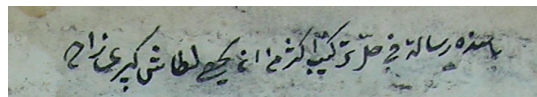 هذه رسالة في حل تركيب اكثر من ان يحصى لطاش كبرى زاده